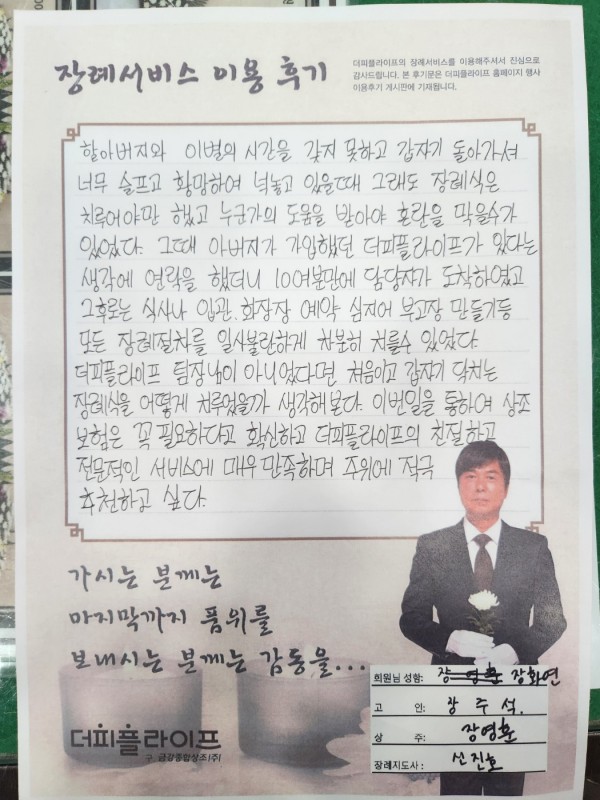 장례서비스 이용 후기
더피플라이프의 장례서비스를 이용해주셔서 진심으로
감사드립니다. 본 후기문은 더피플라이프 홈페이지 행사
이용후기 게시판에 기재됩니다.
할아버지와 이별의 시간을 갖지 못하고 갑자기 돌아가셔
너무 슬프고 황망하여 넋놓고 있을때 그래도 장례식은
치루어야만 했고 누군가의 도움을 받아야 혼란을 막을수가
있었다. 그때 아버지가 가입했던 더피플라이프가 있다는
생각에 연락을 했더니 10여분만에 담당자가 도착하였고
그후로는 식사나 입관, 화장장 예약 심지어 부고장 만들기등
모든 장례절차를 일사불란하게 차분히 치를수 있었다.
더피플라이프 팀장님이 아니었다면 처음이고 갑자기 닥치는
장례식을 어떻게 치루었을까 생각해본다. 이번일을 통하여 상조
보험은 꼭 필요하다고 확신하고 더피플라이프의 친절하고
전문적인 서비스에 매우 만족하며 주위에 적극
추천하고 싶다.
가시는 분께는
마지막까지 품위를
보내시는 분께는 감동을...
회원님 성함: 장영훈 장화연
고 인: 장주석.
상 주: 장영훈
장례지도사: 신진호
더피플라이프
구. 금강종합상조(주)